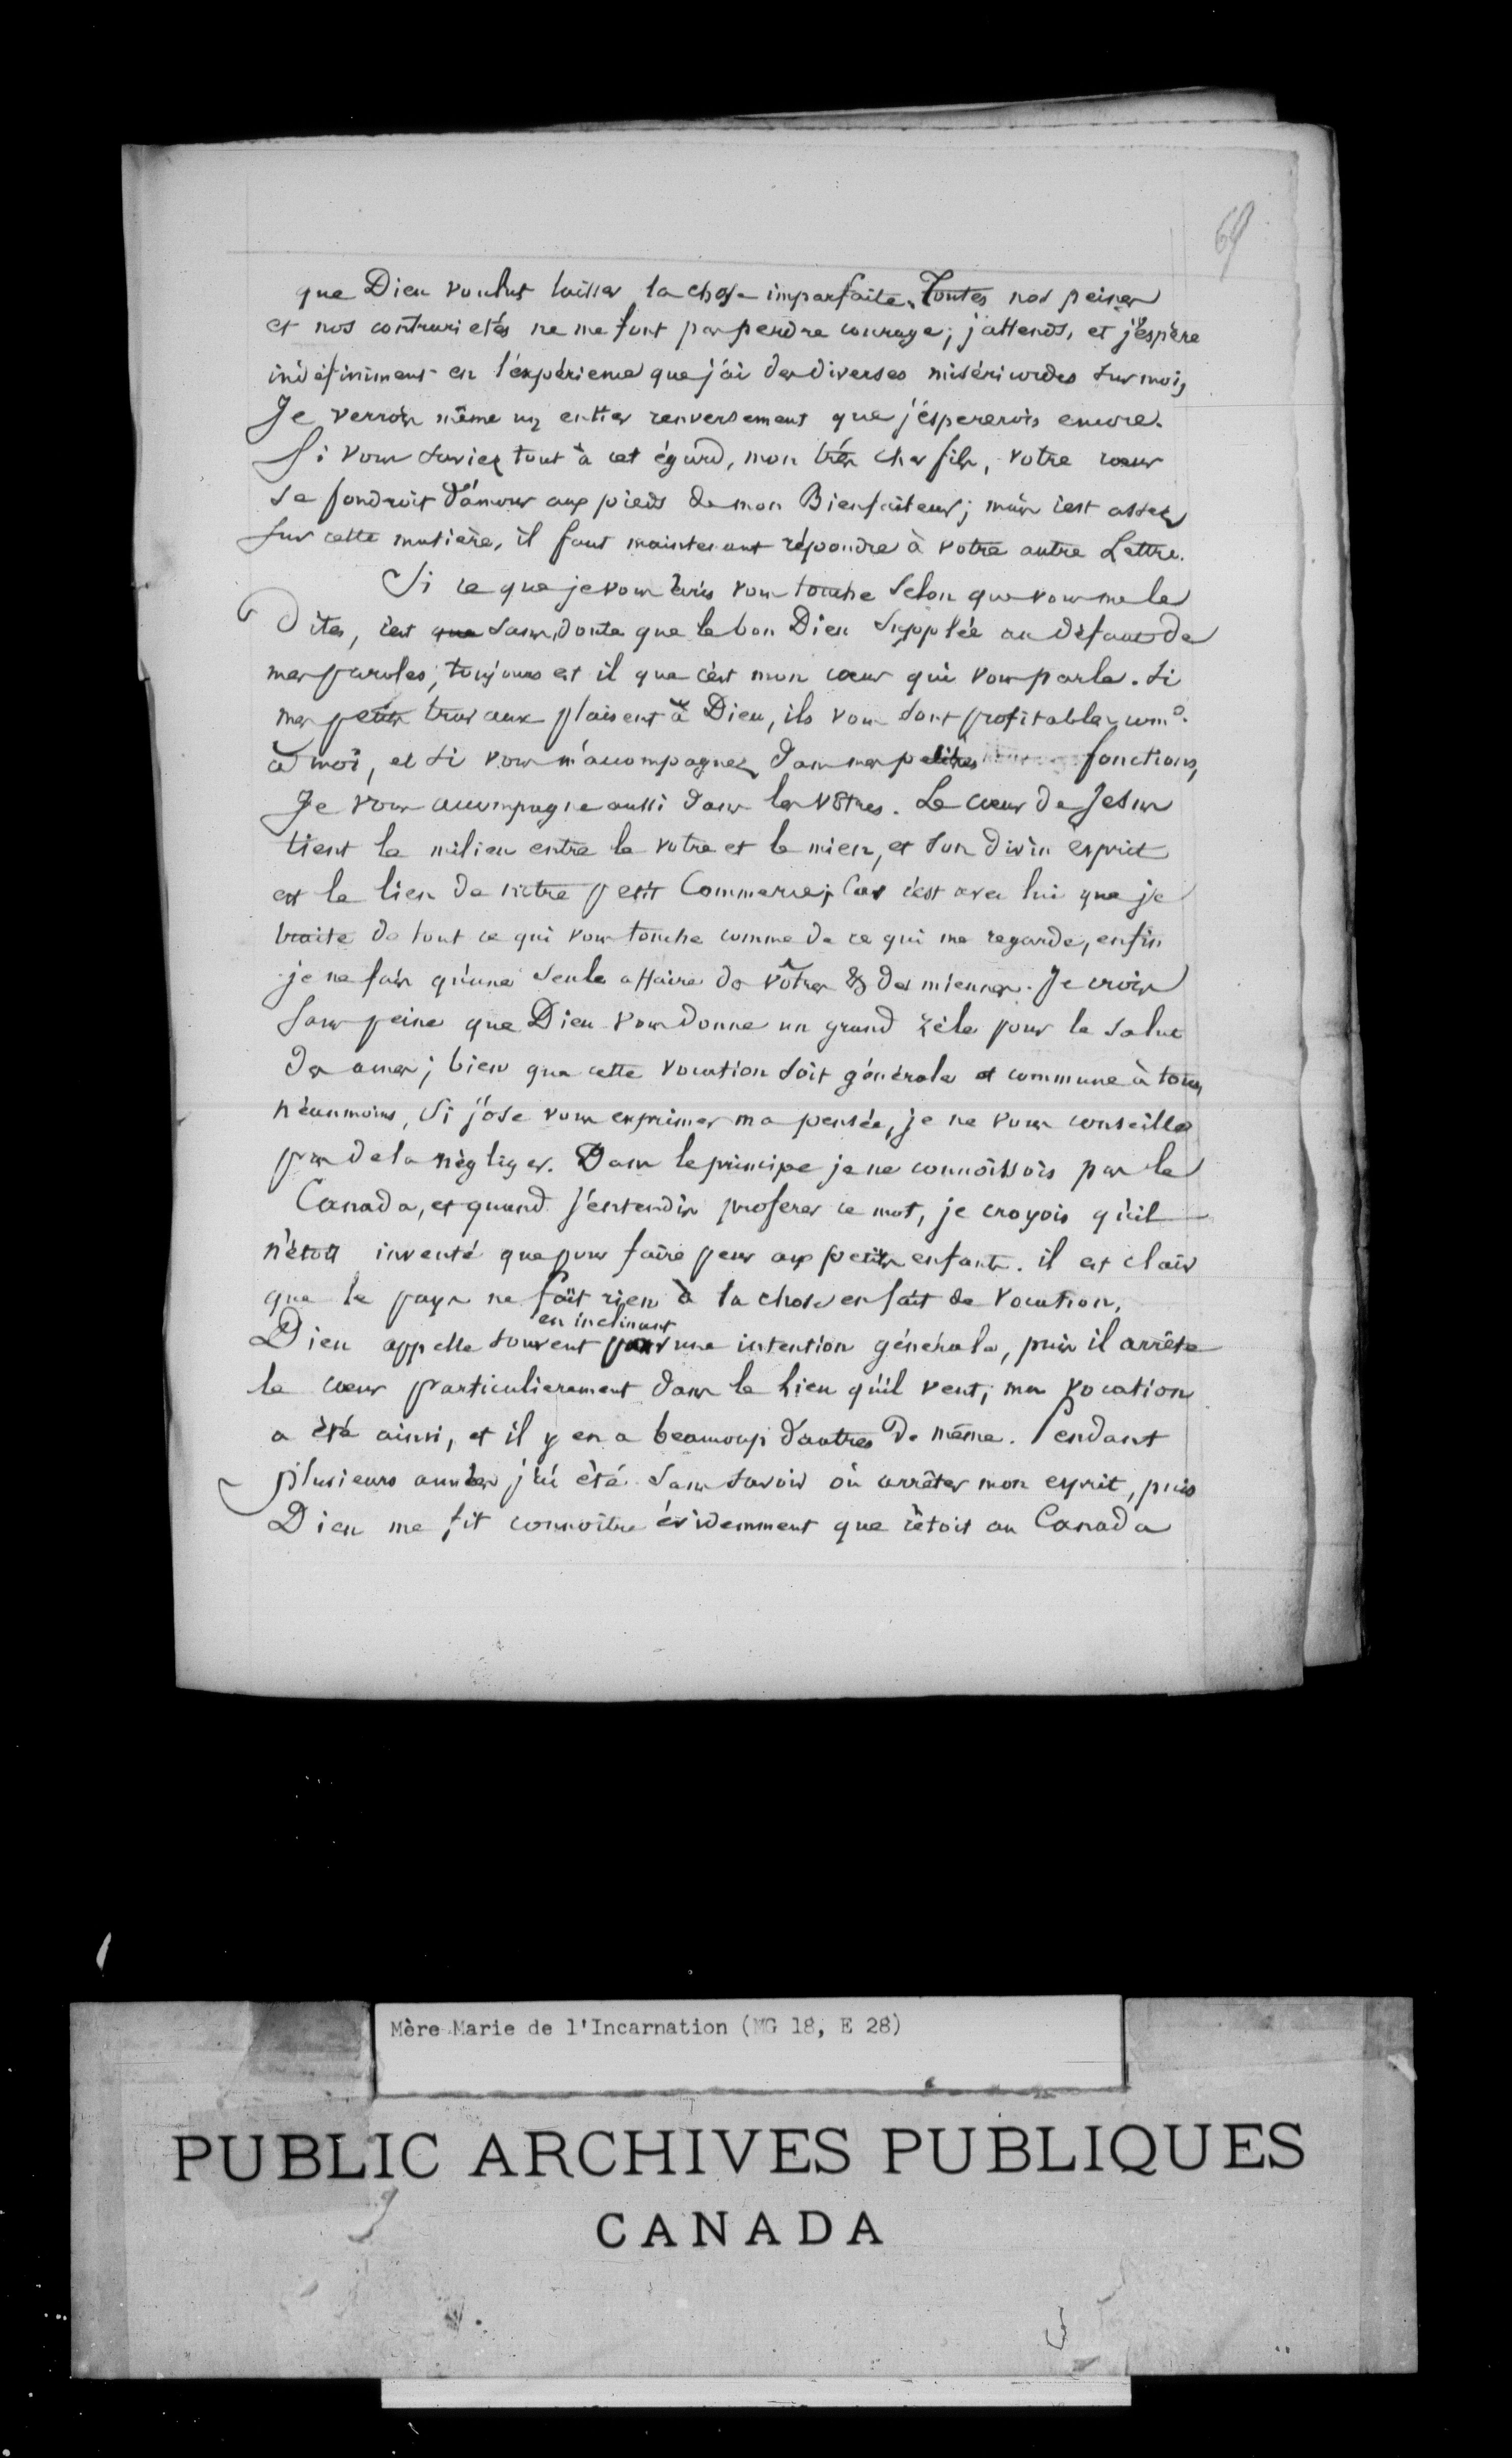 69
que Dieu voulut laisser la chose imparfaite. Toutes nos peines
et nos contrarietés ne me font pas perdre courage; j'attends, et j'espère
indéfiniment en l'expérience que j'ai des diverses miséricordes sur moi,
Je verrois même un entier renversement que j'espererois encore.
Si vous saviez tout à cet égard, mon très cher fils, votre cœur
se fondroit d'amour aux pieds de mon Bienfaiteur; mais c'est assez
sur cette matière, il faut maintenant répondre à votre autre Lettre.
Si ce que je vous écris vous touche selon que vous me le
Dites, c'est que sans doute que le bon Dieu supplée au défaut de
mes paroles; toujours est il que c'est mon cœur qui vous parle. Si
mes petits travaux plaisent à Dieu, ils vous sont profitables come
à moi, et si vous m'accompagnez dans mes petites fonctions,
Je vous accompagne aussi dans les vôtres. Le cœur de Jesus
tient le milieu entre le votre et le mien, et son divin esprit
est le lien de notre petit Commerce; Car c'est avec lui que je
traite de tout ce qui vous touche comme de ce qui me regarde, enfin
je ne fais qu'une seule affaire de vôtres & des miennes. Je crois
sans peine que Dieu vous donne un grand zèle pour le salut
des ames; bien que cette vocation soit générale et commune à tous,
néanmoins, si j'ose vous exprimer ma pensée, je ne vous conseille
pas de la négliger. Dans le principe je ne connoissois pas le
Canada, et quand j'entendis proferer ce mot, je croyois qu'il
n'étoit inventé que pour faire peur aux petits enfants. il est clair
que le pays ne fait rien à la chose en fait de vocation.
en inclinant
Dieu appelle souvent par une intention générale, puis il arrête
le cœur particulierement dans le lieu qu'il veut; ma vocation
a été ainsi, et il y en a beaucoup d'autres de même. Pendant
plusieurs années j'ai été sans savoir où arrêter mon esprit, puis
Dieu me fit connoître évidemment que c'étoit au Canada
Mère Marie de l'Incarnation (MG 18, E 28)
PUBLIC ARCHIVES PUBLIQUES
CANADA